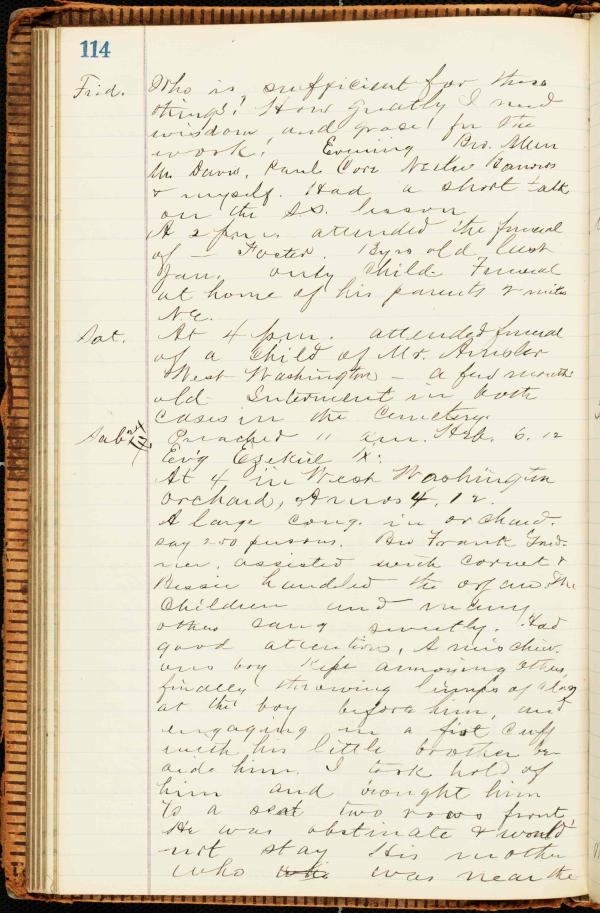 114
Frid. Who is sufficient for these
things! How greatly I need
wisdom and grace for the
work! Evening Bro. Mun
Mr. Davis, Paul Core Nellie
& myself. Had a short talk
on the S.S. lesson
At 2 p.m. attended the funeral
of — Foster. 13 yrs old last
Jan. only childe Funeral
at home of his parents 2 miles
N.E.
Sat. At 4 p.m. attended funeral
of a child of Mr.
West Washington – a few months
old Interment in both
cases in the Cemetery.
Sab Preached 11 a.m. Heb. 6. 12
Ev'g Ezekiel IX:
At 4 in West Washington
orchard, Amos 4. 12.
A large cong. in orchard.
say 200 persons. Bro Frank
assisted with cornet &
Bessie handled the organ. The
Children and many
others sang sweetly. Had
good attention, A mischiev-
ous boy kept annoying others,
finally throwing lumps of clay
at the boy before him, and
engaging in a fist cuff
with his little brother be-
side him. I took hold of
him and brought him
to a seat two rows front
He was obstinate & would
not stay His mother
who was near the